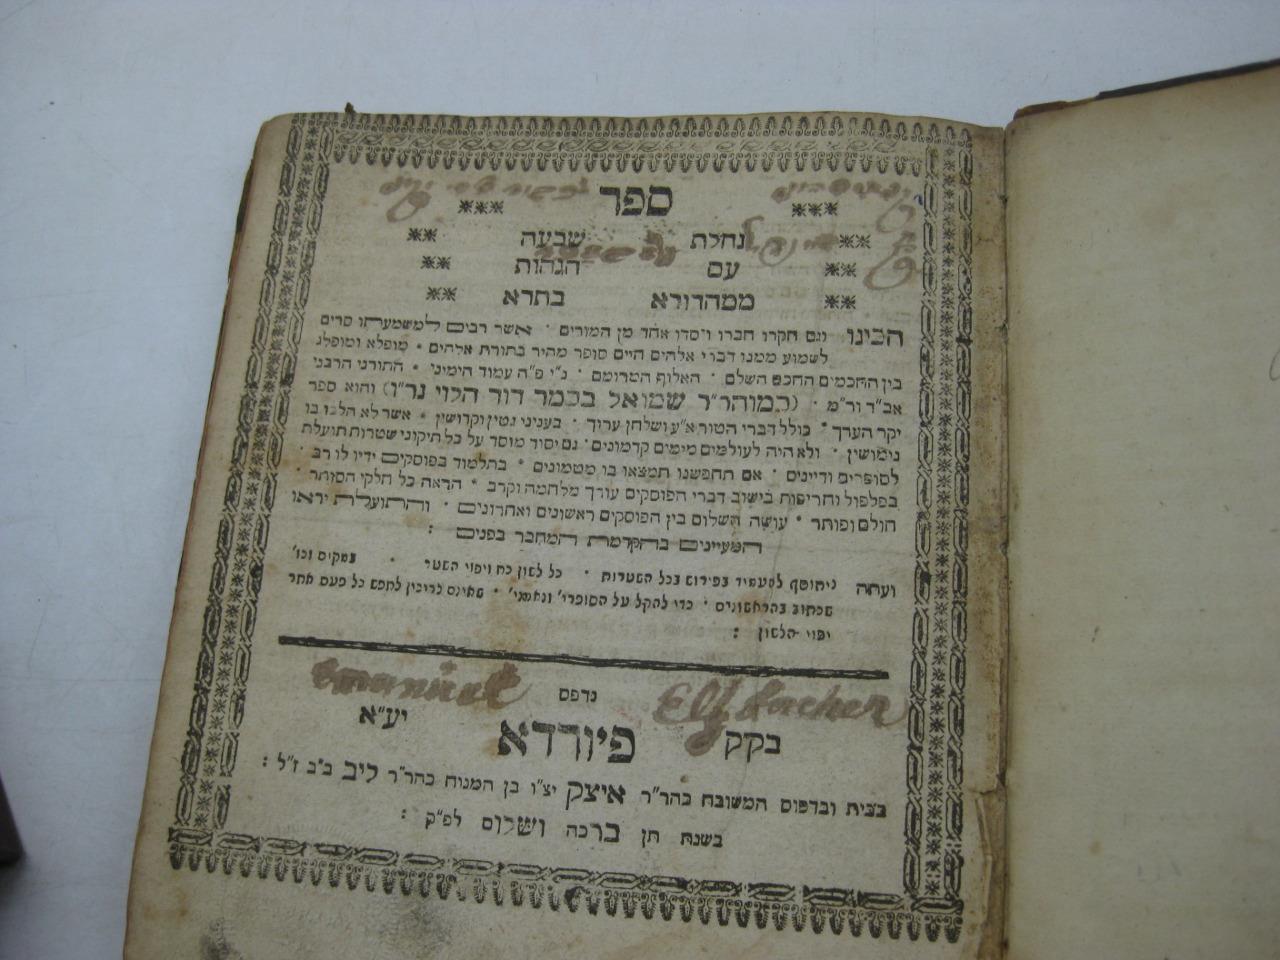 ספר
נחלת שבעה
עם הגהות
ממהדורא בתרא
הכינו וגם חקרו חברו ויסדו אחד מן המורים · אשר רבים למשמעתו סרים
לשמוע ממנו דברי אלהים חיים סופר מהיר בתורת אלהים · מופלא ומופלג
בין החכמים החכם השלם · האלוף המרומם · נ"י פ"ה עמוד הימיני · התורני הרבני
אב"ד ור"מ · (כמוהר"ר שמואל בכמר דוד הלוי נר"ו) והוא ספר
יקר הערך · כולל דברי הטור א"ע ושלחן ערוך · בעניני גטין וקדושין · אשר לא הלכו בו
ולא היה לעולמים מימים קדמונים · גם יסוד מוסד על כל תיקוני שטרות תועלת
לסופרים ודיינים · אם תחפשנו תמצאו בו מטמונים · בתלמוד בפוסקים ידיו לו רב ·
בפלפול וחריפות בישוב דברי הפוסקים עורך מלחמה וקרב · הראה כל חלקי הסותר
חולם ופותר · עושה השלום בין הפוסקים ראשונים ואחרונים · והתועלת יראו
המעיינים בהקדמת המחבר בפנים :
ועתה ניתוסף להעמיד בפירוש בכל השטרות · כל לשון כח ויפוי השטר · בעסקים וכו'
שכתוב בהראשונים · כדי להקל על הסופרי' ונאמני' · שאינם צריכין לחפש כל פעם אחר
יפוי הלשון :
Emanuel נדפס Elf Bacher
בקק פיורדא יע"א
בבית ובדפוס המשובח כהר"ר איצק יצ"ו בן המנוח כהר"ר ליב ב"ב ז"ל :
בשנת תן ברכה ושלום לפ"ק :